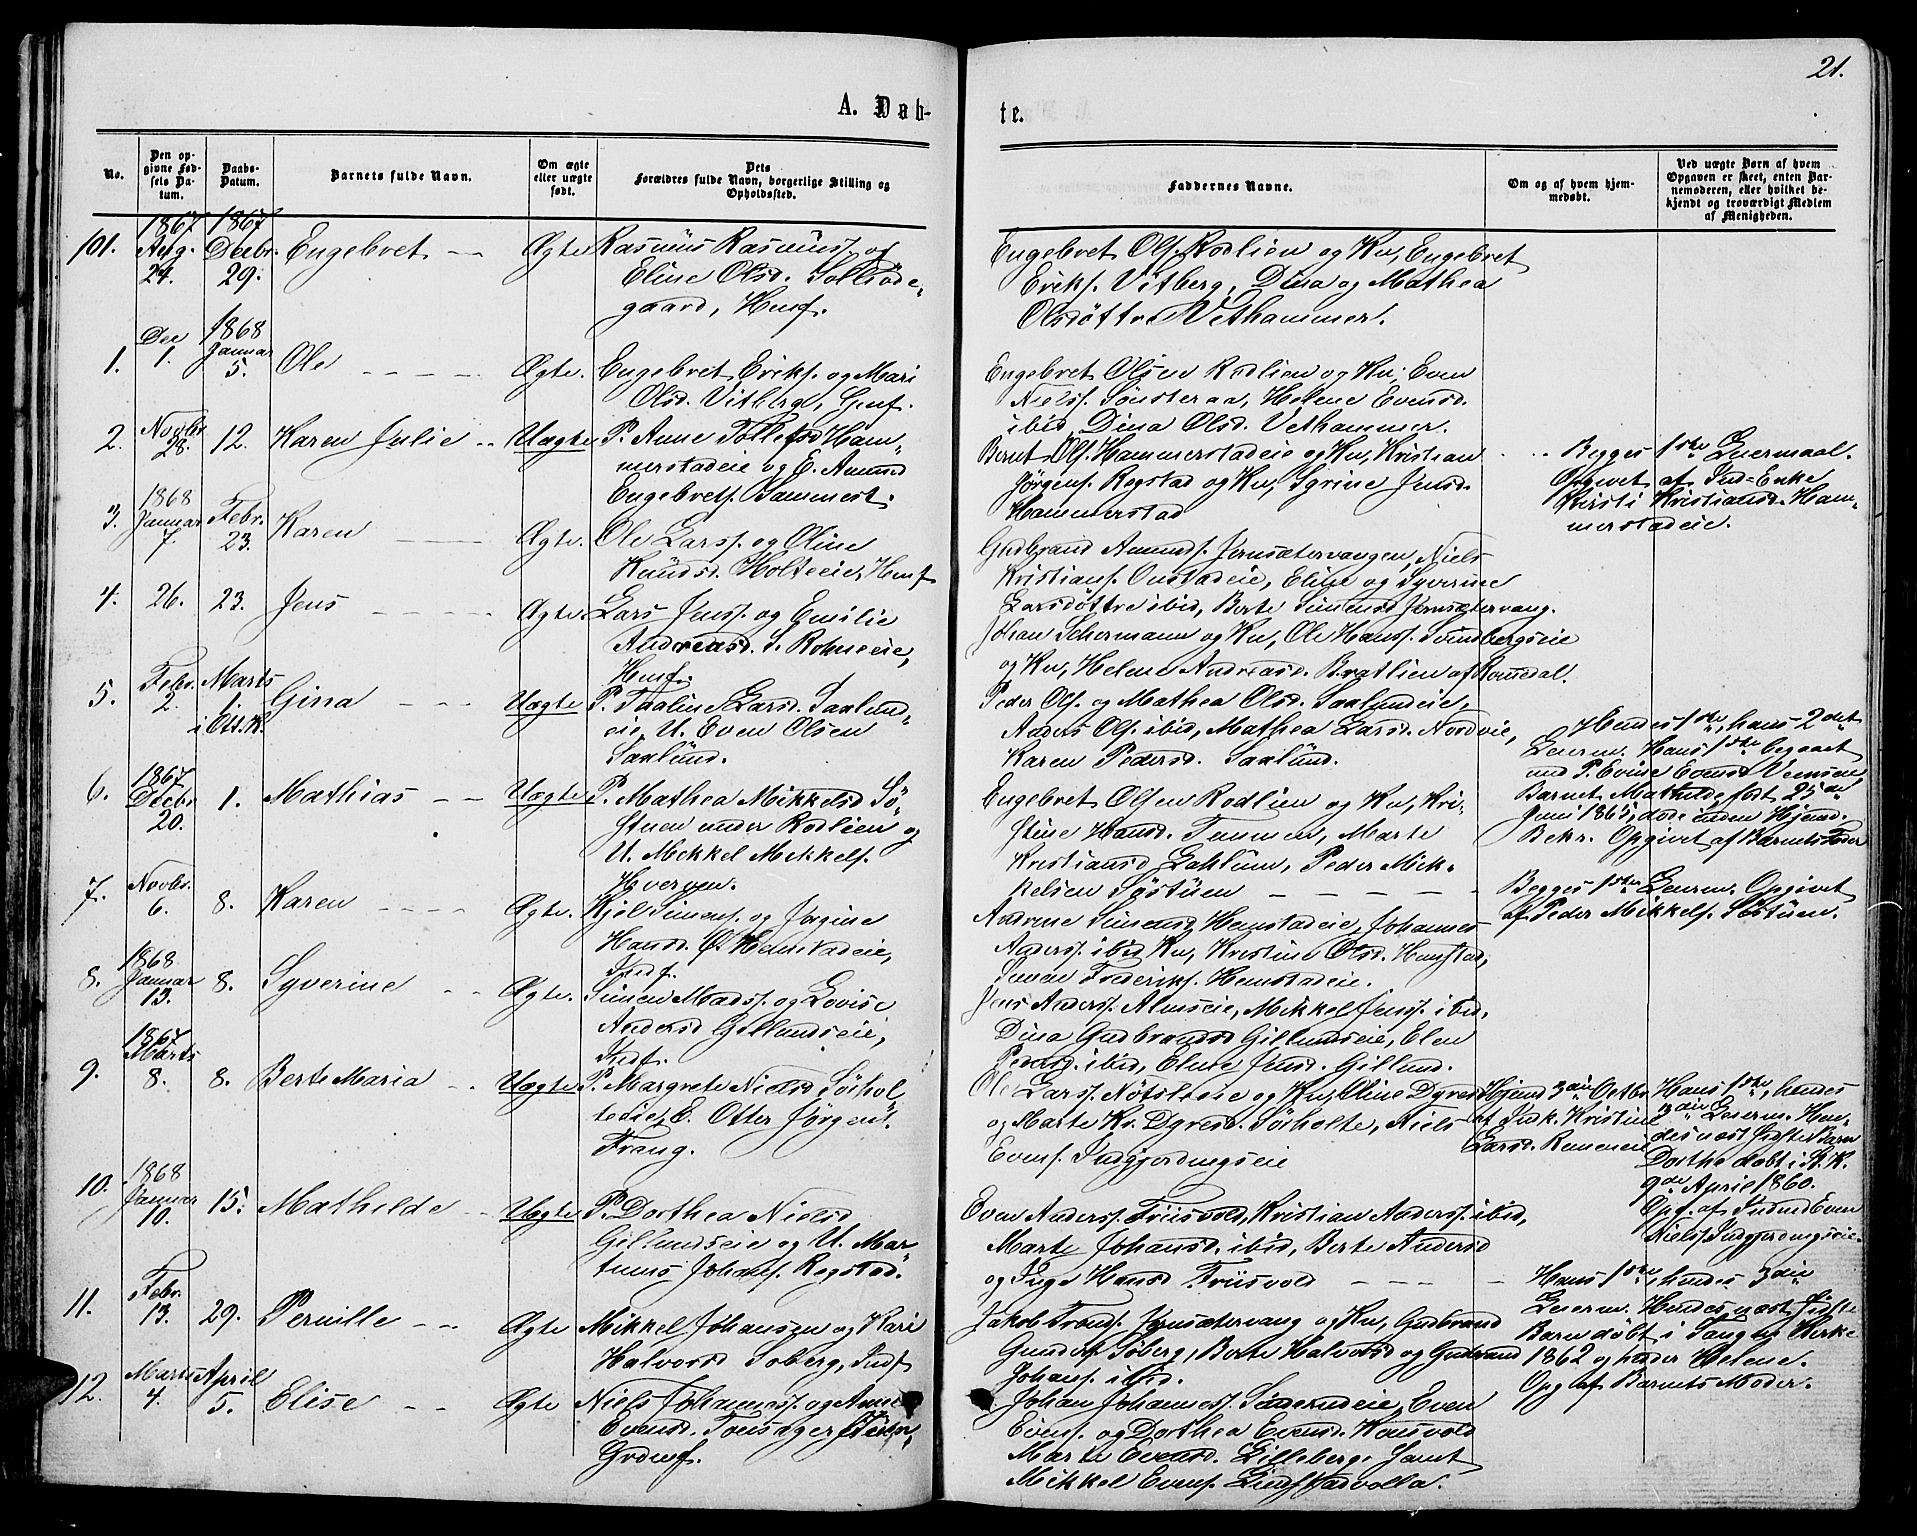 21.
A. Døb-
te.
No.
Den op-
givne Fød-
sels Da-
tum.
Daabs-
Datum.
Barnets fulde Navn.
Om ægte
eller uægte
født.
Dets
Forældres fulde Navn, borgerlige Stilling og
Opholdssted.
Faddernes Navne.
Om og af hvem hjem-
medøbt.
Ved uægte Børn af hvem
Opgaven er skeet, enten Bar-
nemoderen, eller hvilket be-
kjendt og troværdigt Medlem
af Menigheden.
101.
1867
Aug.
24.
1867
Decbr.
29.
Engebret
Ægte
Rasmus Rasmuss. og
Eline Olsd. Solløde-
gaard, Husf.
Engebret Ols. Rodlien og Ku, Engebret
Eriks. Vitberg, Dina og Mathea
Olsdøttre Vethammer.
1.
Dec
1.
1868
Januar
5.
Ole
Ægte.
Engebret Eriks. og Mari
Olsd. Vitberg, Husf.
Engebret Olsen Rodlien og Ku, Even
Niels. Sønsteraa, Helene Evensd.
ibid Dina Olsd. Vethammer.
2.
Novbr
28.
12.
Karen Julie
Uægte
P. Anne Tollefsd Ham-
merstadeie og E. Amund
Engebrets. Sammest.
Bernt Ols. Hammerstadeie og Ku, Kristian
Jørgens. Rogstad og Ku, Syrine Jensd.
Hammerstad
Begges 1ste Leiermaal.
Opgivet af Ind-Enke
Kirsti Kristiansd. Ham-
merstadeie.
3.
1868
Januar
7.
Febr.
23.
Karen
Ægte.
Ole Larss. og Oline
Knudsd. Holteeie, Husf
Gudbrand Amunds. Jernsætervangen, Niels
Kristians. Onstadeie, Eline og Syverine
Larsdøttre ibid, Berte Simensd Jernsætervang.
4.
26.
23.
Jens
Ægte.
Lars Jenss. og Emilie
Andreasd. S. Romeeie,
Husf.
Johan Schermann og Ku, Ole Hanss. Svindbergseie
og Ku, Helene Andreasd. Bratlien af Romedal.
5.
Febr.
2.
Marts
1.
i Ett.K.
Gina
Uægte
P. Pauline Larsd. Saxlund-
eie, U. Even Olsen
Saxlund.
Peder Ols. og Mathea Olsd. Saxlundeie,
Anders Ols. ibid, Mathea Larsd. Nordvie,
Karen Pedersd. Saxlund.
Hendes 1ste, hans 2det
Leierm. Hans 1ste begaaet
med P. Evine Evensd Veensen,
Barnet Mathilde født 25de
Juni 1865, døde inden Hjemd.
Bekr. Opgivet af Barnets Fader
6.
1867
Decbr
20.
1.
Mathias
Uægte
P. Mathea Mikkelsd Sø-
stuen under Rodlien og
U. Mikkel Mikkels.
Hverven.
Engebret Olsen Rodlien og Ku, Kri-
stine Hansd. Tommen, Marte
Kristiansd Laklum, Peder Mik-
kelsen Søstuen
Begges 1ste Leierm. Opgivet
af Peder Mikkels. Søstuen.
7.
Novbr.
6.
8.
Karen
Ægte.
Kjøl Simens. og Jørgine
Hansd. Ø. Hemstadeie,
Indf.
Andrine Simensd Hemstadeie, Johannes
Anderss. ibid Ku, Kristine Olsd. Hemstad,
Simen Frederiks. Hemstadeie.
8.
1868
Januar
13.
8.
Syverine
Ægte.
Simen Madss. og Lovise
Andersd Gillundseie,
Indf.
Jens Anderss. Almseie, Mikkel Jenss. ibid,
Dina Gudbrandsd Gillundseie, Elen
Pedersd. ibid, Eline Jensd. Gillund.
9.
1867
Marts
8.
8.
Berte Maria
Uægte
P. Margrete Nielsd Sørhol-
teeie, E. Otter Jørgens.
Frang.
Ole Larss. Nøtsleeie og Ku, Oline Dyresd.
og Marte Kr. Dyresd. Sørholte, Niels
Evens. Indgjerdingseie
Hjemd 3die Octbr
af Indk. Kristine
Larsd. Romeneie
Hans 1ste, hendes
3die Leierm. Hen-
des næst sidste Barn
Dorthe døbt i St.K.
9de April 1860.
Opg. af Indmd Even
Niels. Indgjerdingseie.
10.
1868
Januar
10.
15.
Mathilde
Uægte
P. Dorthea Nielsd
Gillundseie og U. Mar-
tinus Johans. Rogstad.
Even Anderss. Friisvold, Kristian Anderss. ibid,
Marte Johansd. ibid, Berte Andersd
og Inge Hansd Friisvold
Hans 1ste, hendes 3die
Leierm. Hendes næst sidste
Barn døbt i Tangen Kirke
1862 og heder Helene.
Opg af Barnets Moder.
11.
Febr.
13.
29.
Pernille
Ægte
Mikkel Johansen og Kari
Halvorsd Soberg, Indf
Jakob Frans. Jernsætervang og Ku, Gudbrand
Gunders. Søberg, Berte Halvorsd og Gudbrand
Johans. ibid.
12.
Marts
4.
April
5.
Elise
Ægte
Niels Johanness. og Anne
Evensd. Tonsager
Grdmf.
Johan Johannes. Sønerudeie, Even
Evens. og Dorthea Evensd. Kausvold
Marte Evensd. Lilleberg, samt
Mikkel Evens. Lindstadvolla.